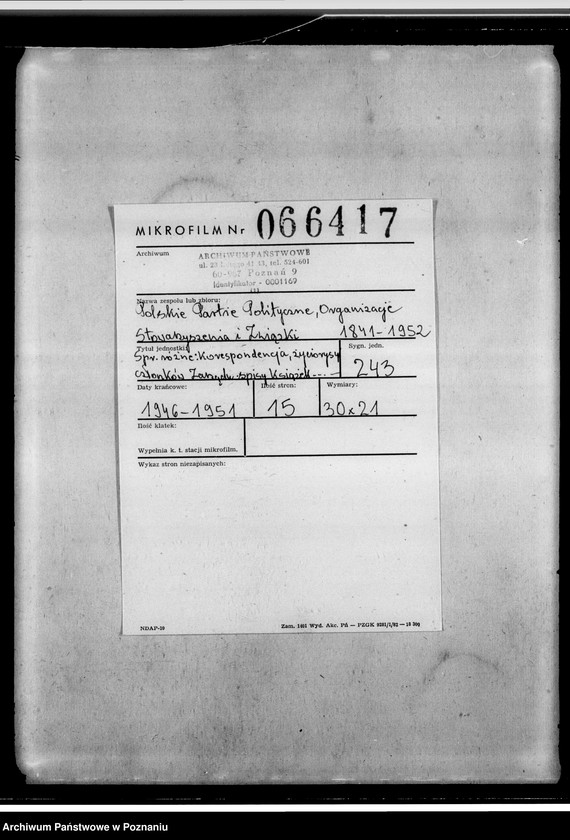 MIKROFILM Nr 066417
Archiwum
ARCHIWUM PAŃSTWOWE
ul. 23 Lutego 41/43, tel. 524-601
60-967 Poznań 9
Identyfikator - 0001169
Nazwa zespołu lub zbioru:
Polskie Partie Polityczne, Organizacje
Stowarzyszenia i Związki 1841-1952
Tytuł jednostki: Sygn. jedn.
Spr. różne: Korespondencja, życiorysy
członków Zarządu, spisy książek ---- 243
Daty krańcowe: Ilość stron: Wymiary:
1946-1951 15 30x21
Ilość klatek:
Wypełnia k. t. stacji mikrofilm.
Wykaz stron niezapisanych:
NDAP-20 Zam. Wyd. Akc. Pń — PZGK
Archiwum Państwowe w Poznaniu